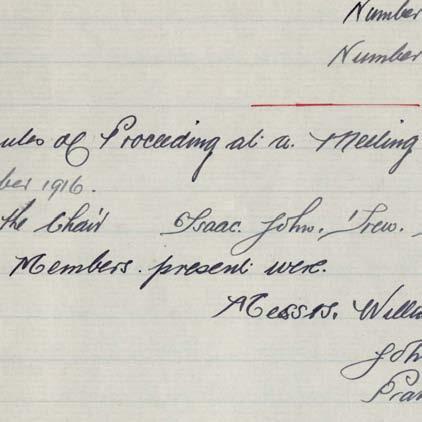 Number
Number
utes of Proceeding at a Meeting
ber 1916.
the Chair Isaac. John. Trew.
Members present were.
Messrs. Willi
Joh
Fran